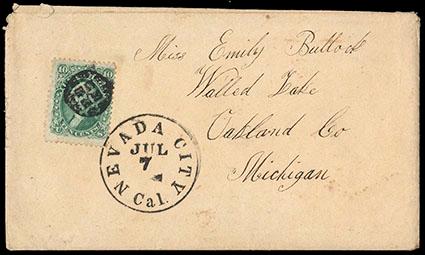 Miss Emily Bullock
Walled Lake
Oakland Co
Michigan
10 10
NEVADA CITY
JUL
7
Cal.